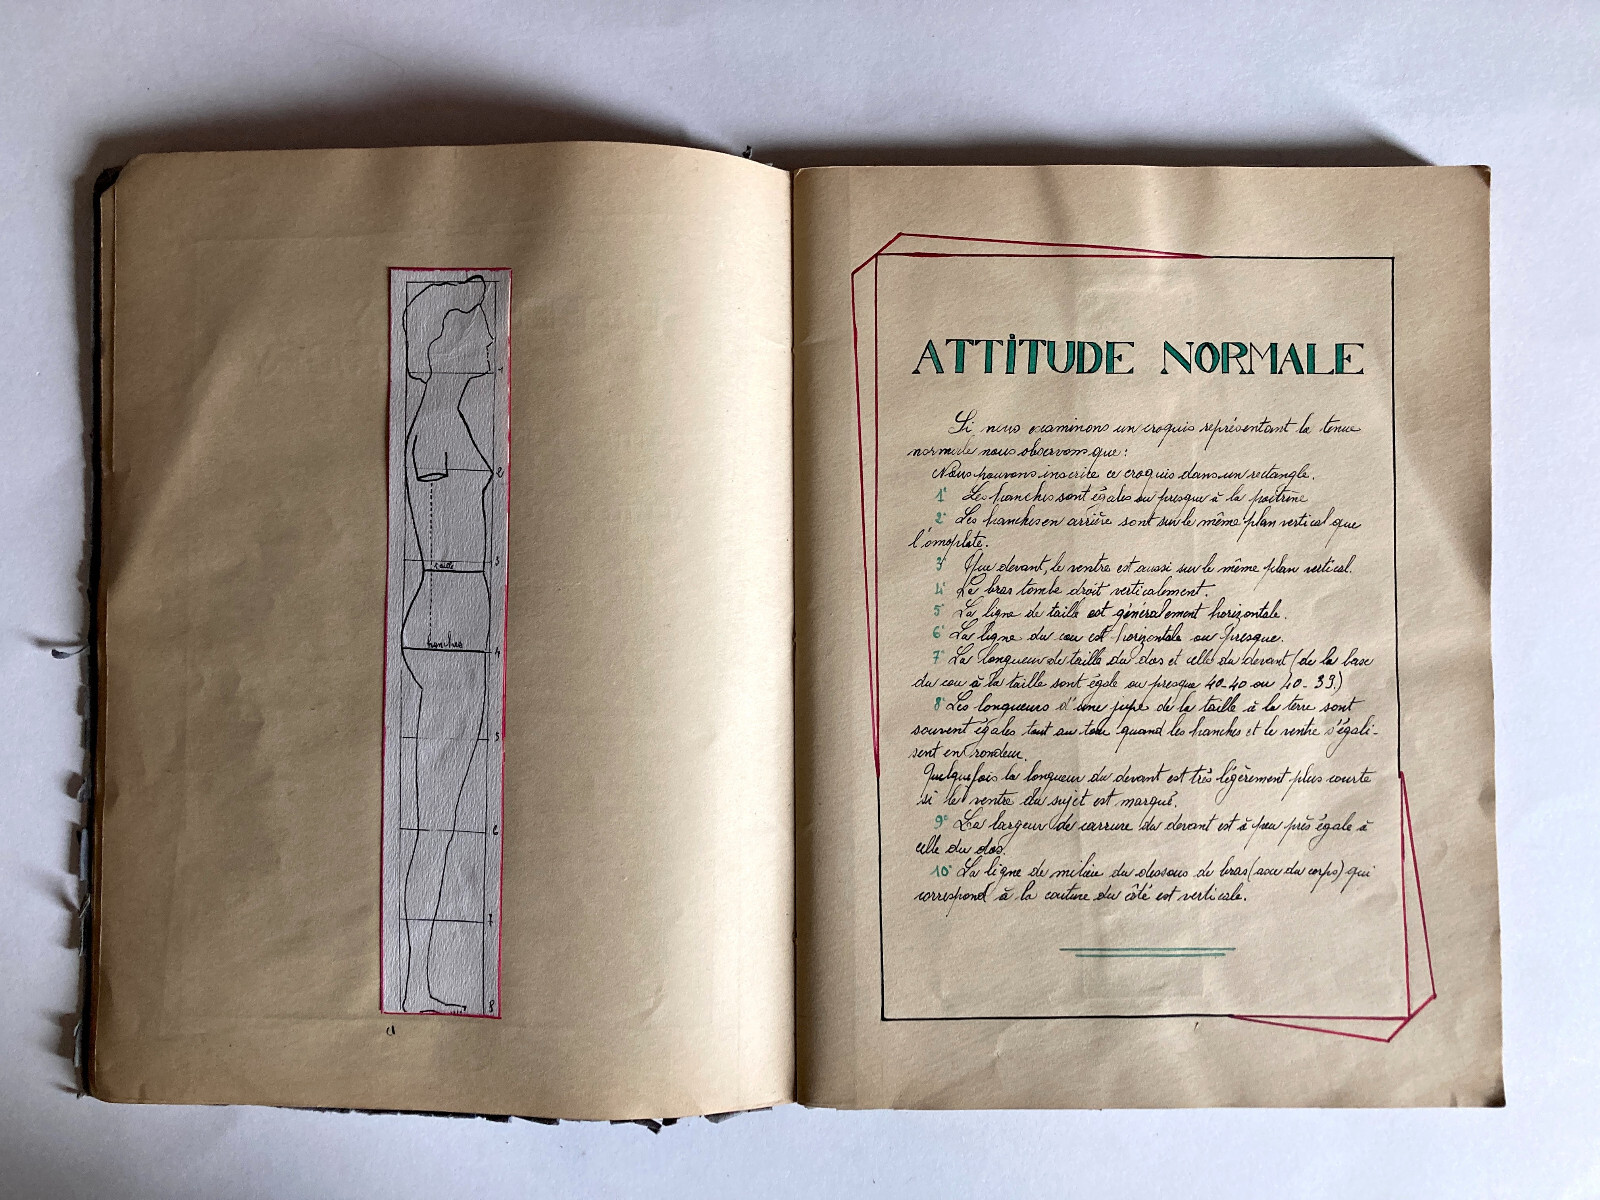 1
2
3
taille
hanches
4
5
6
7
8
a
ATTITUDE NORMALE
Si nous examinons un croquis représentant la tenue
normale nous observons que :
Nous pouvons inscrire ce croquis dans un rectangle.
1° Les hanches sont égales ou presque à la poitrine
2° Les hanches en arrière sont sur le même plan vertical que
l'omoplate.
3° Que devant, le ventre est aussi sur le même plan vertical.
4° Le bras tombe droit verticalement.
5° La ligne de taille est généralement horizontale.
6° La ligne du cou est horizontale ou presque.
7° La longueur de taille du dos et celle du devant (de la base
du cou à la taille sont égale ou presque 40-40 ou 40-39.)
8° Les longueurs d'une jupe de la taille à la terre sont
souvent égales tout au tour quand les hanches et le ventre s'égali-
sent en rondeur.
Quelquefois la longueur du devant est très légèrement plus courte
si le ventre du sujet est marqué.
9° La largeur de carrure du devant est à peu près égale à
celle du dos.
10° La ligne de milieu du dessous de bras (axe du corps) qui
correspond à la couture du côté est verticale.